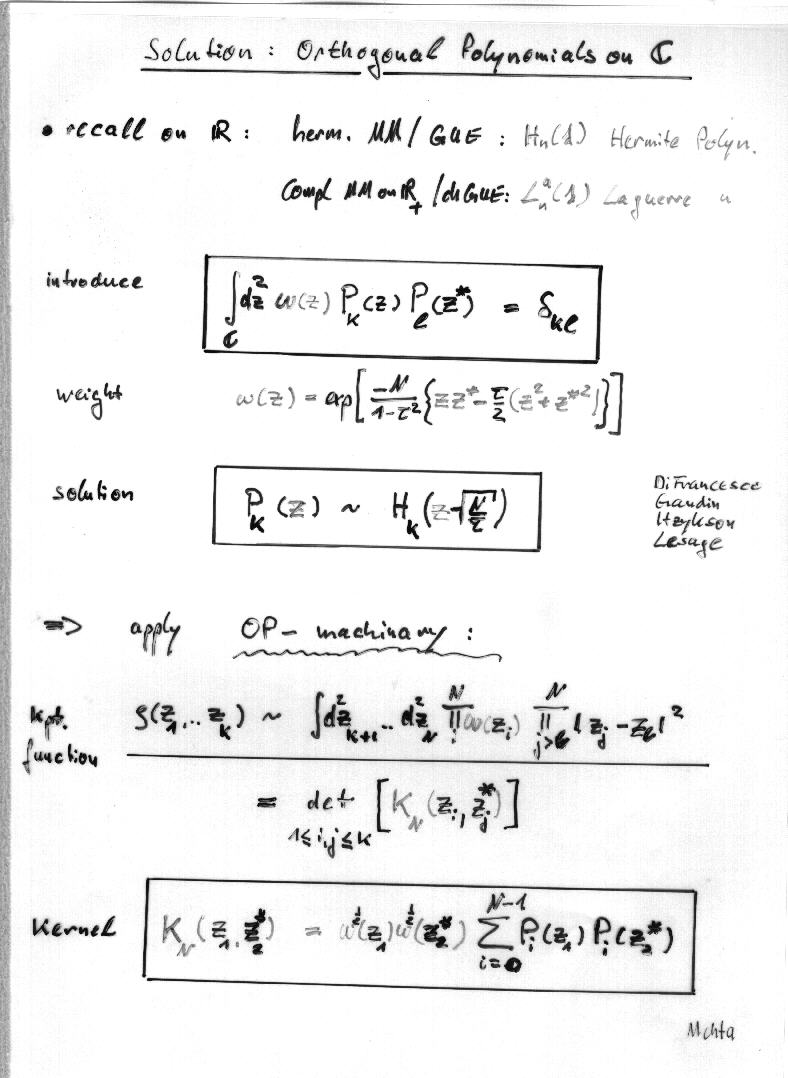 Solution : Orthogonal Polynomials on ℂ
• recall on ℝ : herm. MM / GUE : Hₙ(λ) Hermite Polyn.
Compl MM on ℝ₊ / chGUE: Lₙᵃ(λ) Laguerre "
introduce ∫_ℂ d²z ω(z) P_k(z) P_l(z*) = δ_kl
weight ω(z) = exp[ -N/(1-τ²) { zz* - τ/2 (z² + z*²) } ]
solution P_k(z) ~ H_k( z √(N/τ) )
DiFrancesco
Gaudin
Itzykson
Lesage
=> apply OP - machinary :
k pt. function ρ(z₁,..z_k) ~ ∫d²z_{k+1}.. d²z_N ∏_i^N ω(z_i) ∏_{j>l}^N |z_j - z_l|²
= det_{1≤i,j≤k} [ K_N(z_i, z_j*) ]
Kernel K_N(z₁, z₂*) = ω^{1/2}(z₁) ω^{1/2}(z₂*) ∑_{i=0}^{N-1} P_i(z₁) P_i(z₂*)
Mehta